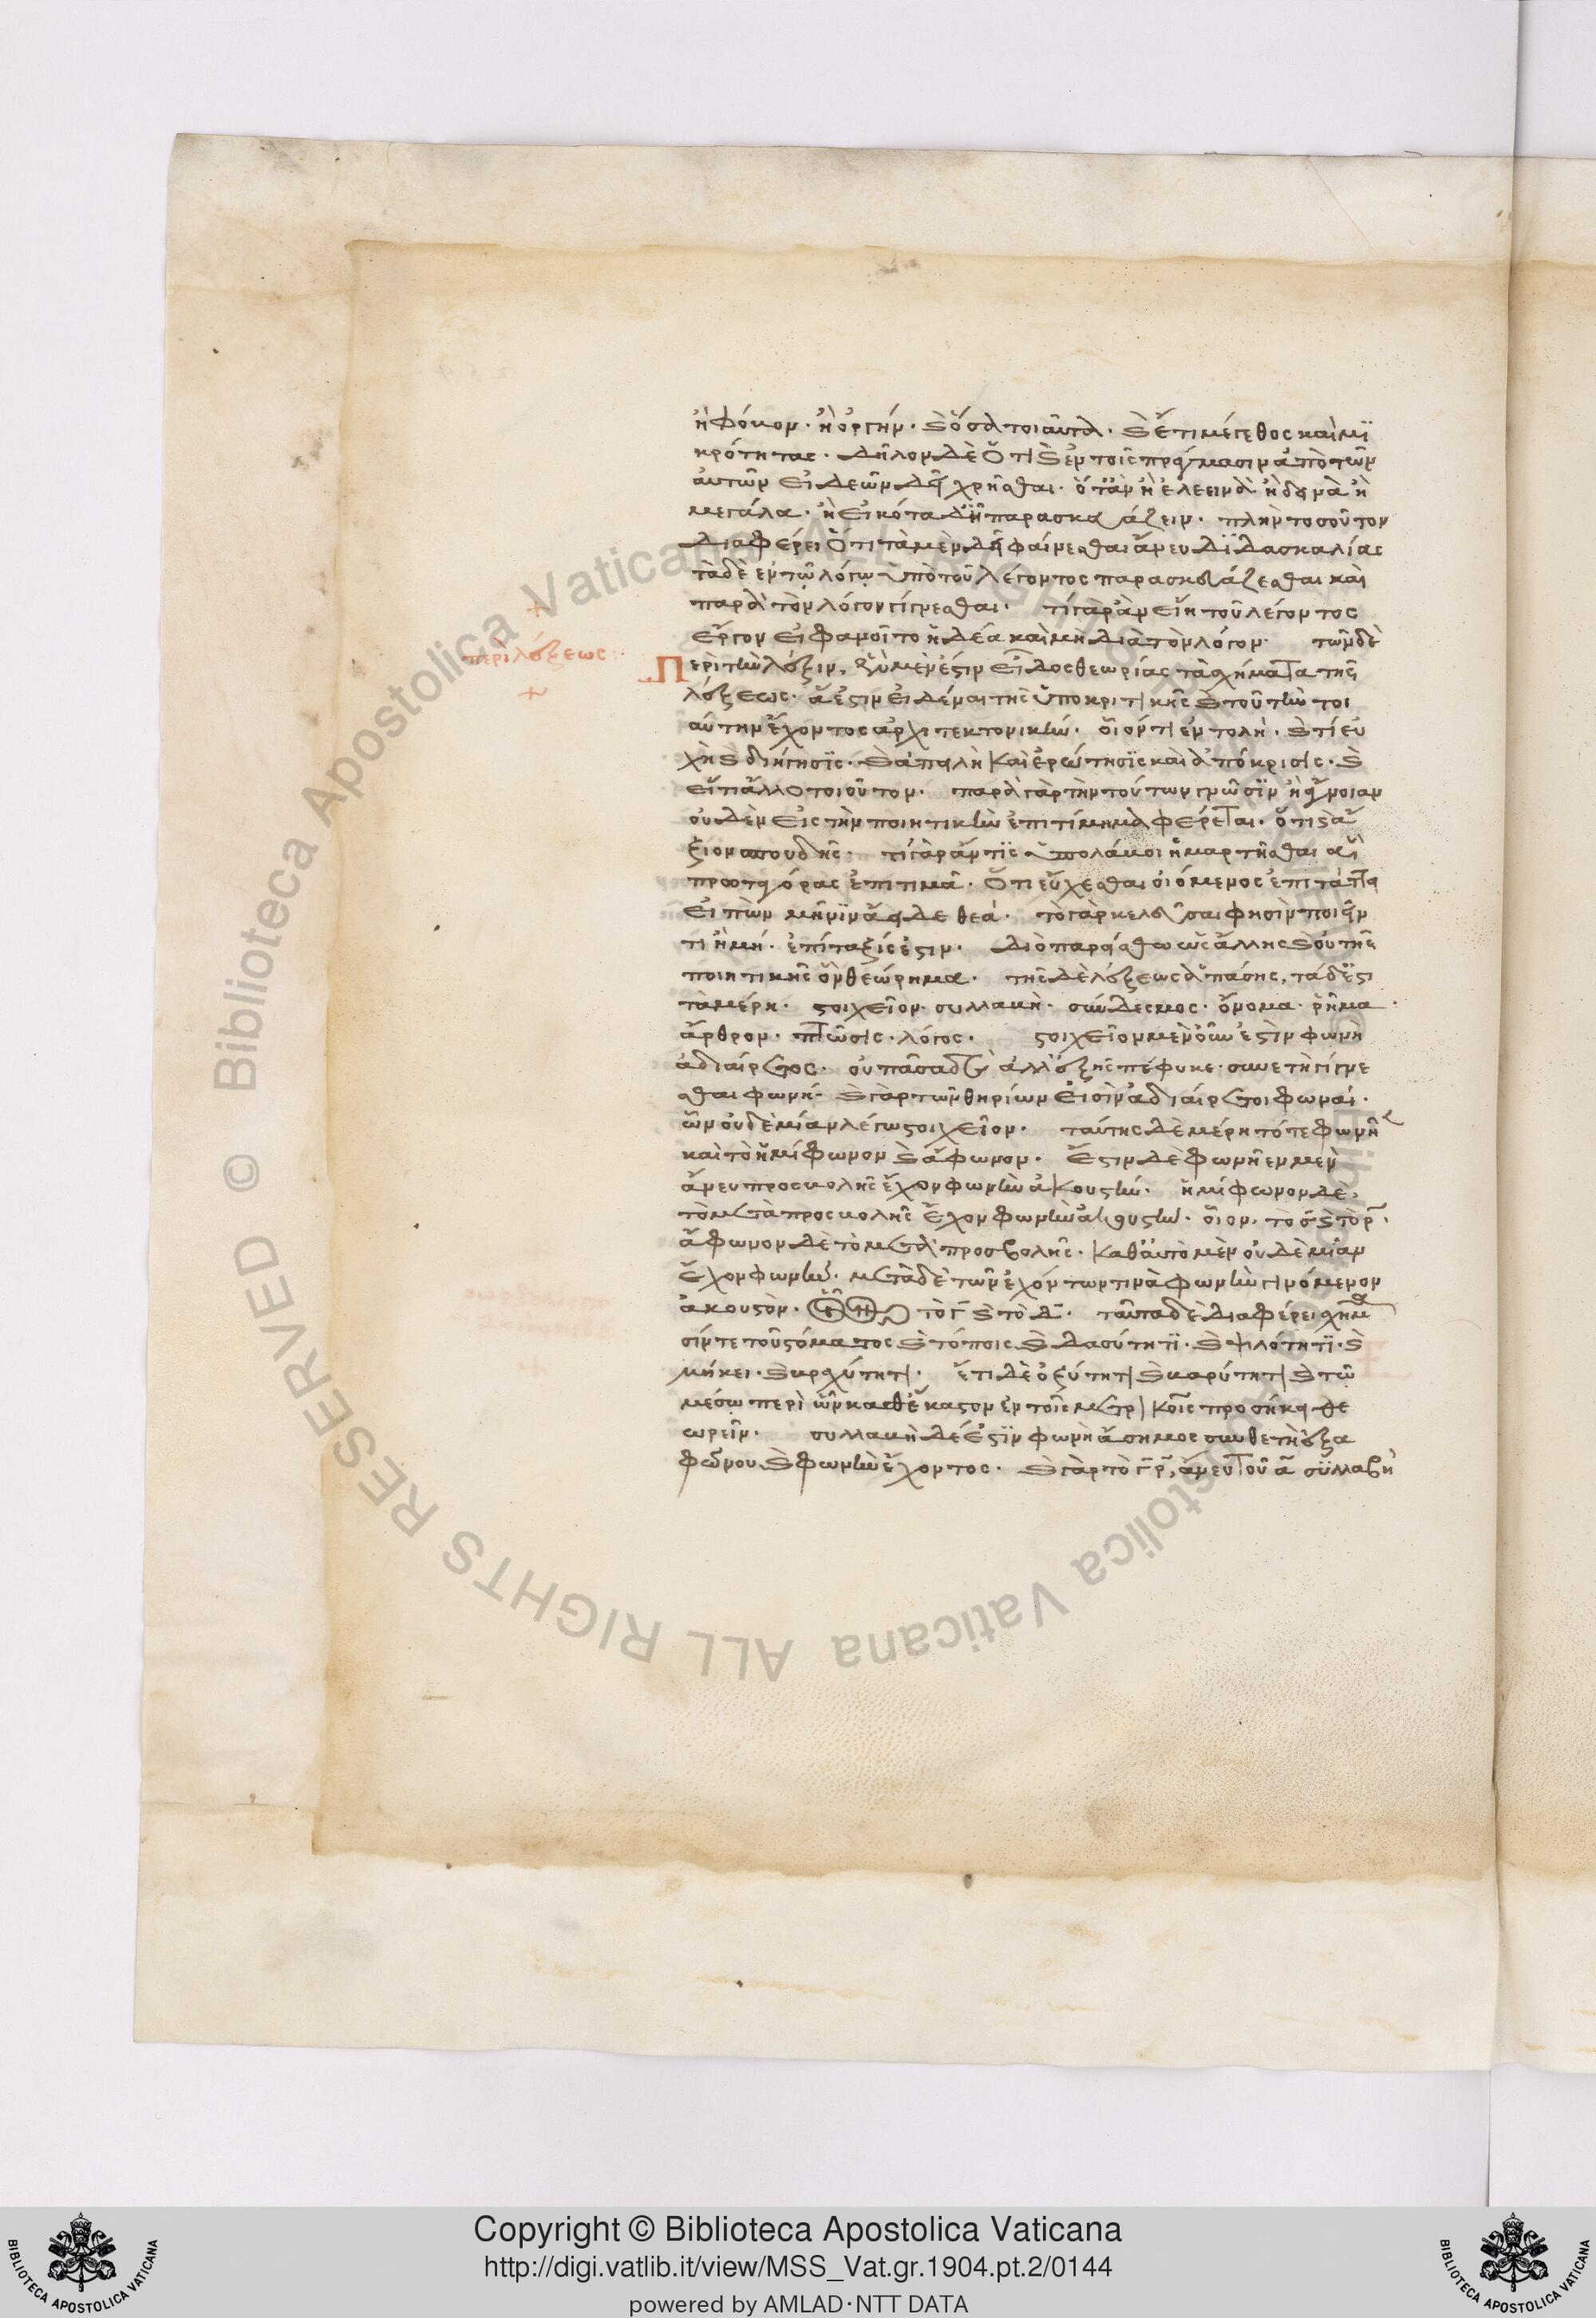 ἢ φόβον· ἢ ὀργήν· καὶ ὅσα τοιαῦτα· καὶ ἔτι μέγεθος καὶ μι
κρότητας· δῆλον δὲ ὅτι καὶ ἐν τοῖς πράγμασιν ἀπὸ τῶν
αὐτῶν εἰδεῶν δεῖ χρῆσθαι· ὅταν ἢ ἐλεεινὰ ἢ δεινὰ ἢ
μεγάλα· ἢ εἰκότα δέῃ παρασκευάζειν· πλὴν τοσοῦτον
διαφέρει ὅτι τὰ μὲν δεῖ φαίνεσθαι ἄνευ διδασκαλίας
τὰ δὲ ἐν τῷ λόγῳ ὑπὸ τοῦ λέγοντος παρασκευάζεσθαι καὶ
παρὰ τὸν λόγον γίγνεσθαι· τί γὰρ ἂν εἴη τοῦ λέγοντος
ἔργον εἰ φανοῖτο ἡδέα καὶ μὴ διὰ τὸν λόγον· τῶν δὲ
περὶ λέξεως
περὶ τὴν λέξιν, ἓν μέν ἐστιν εἶδος θεωρίας τὰ σχήματα τῆς
λέξεως· ἅ ἐστιν εἰδέναι τῆς ὑποκριτικῆς καὶ τοῦ τὴν τοι
αύτην ἔχοντος ἀρχιτεκτονικήν· οἷον τί ἐντολὴ· καὶ τί εὐ
χὴ καὶ διήγησις· καὶ ἀπειλὴ καὶ ἐρώτησις καὶ ἀπόκρισις· καὶ
εἴ τι ἄλλο τοιοῦτον· παρὰ γὰρ τὴν τούτων γνῶσιν ἢ ἄγνοιαν
οὐδὲν εἰς τὴν ποιητικὴν ἐπιτίμημα φέρεται· ὅτι καὶ ἄ
ξιον σπουδῆς· τί γὰρ ἄν τις ὑπολάβοι ἡμαρτῆσθαι ἃ
πρωταγόρας ἐπιτιμᾶ· ὅτι εὔχεσθαι οἰόμενος ἐπιτάττει
εἰπὼν μῆνιν ἄειδε θεά· τὸ γὰρ κελεῦσαι φησὶν ποιεῖν
τι ἢ μή· ἐπίταξίς ἐστιν· διὸ παρείσθω ὡς ἄλλης καὶ οὐ τῆς
ποιητικῆς ὂν θεώρημα· τῆς δὲ λέξεως ἁπάσης, τάδ' ἐστὶ
τὰ μέρη· στοιχεῖον· συλλαβὴ· σύνδεσμος· ὄνομα· ῥῆμα·
ἄρθρον· πτῶσις· λόγος· στοιχεῖον μὲν οὖν ἐστὶν φωνὴ
ἀδιαίρετος· οὐ πᾶσα δὲ ἀλλ' ἐξ ἧς πέφυκε συνετὴ γίγνε
σθαι φωνή· καὶ γὰρ τῶν θηρίων εἰσὶν ἀδιαίρετοι φωναί·
ὧν οὐδεμίαν λέγω στοιχεῖον· ταύτης δὲ μέρη τό τε φωνῆεν
καὶ τὸ ἡμίφωνον καὶ ἄφωνον· ἔστιν δὲ φωνῆεν μὲν
ἄνευ προσβολῆς ἔχον φωνὴν ἀκουστήν· ἡμίφωνον δὲ,
τὸ μετὰ προσβολῆς ἔχον φωνὴν ἀκουστήν· οἷον, τὸ σ καὶ τὸ ρ·
ἄφωνον δὲ τὸ μετὰ προσβολῆς· καθ' αὑτὸ μὲν οὐδεμίαν
ἔχον φωνὴν· μετὰ δὲ τῶν ἐχόντων τινὰ φωνὴν γινόμενον
ἀκουστόν· οἷον τὸ γ καὶ τὸ δ· ταῦτα δὲ διαφέρει σχήμα
σίν τε τοῦ στόματος καὶ τόποις καὶ δασύτητι· καὶ ψιλότητι· καὶ
μήκει· καὶ βραχύτητι· ἔτι δὲ ὀξύτητι καὶ βαρύτητι καὶ τῷ
μέσῳ περὶ ὧν καθ' ἕκαστον ἐν τοῖς μετρικοῖς προσήκει θε
ωρεῖν· συλλαβὴ δέ ἐστιν φωνὴ ἄσημος συνθετὴ ἐξ ἀ
φώνου καὶ φωνὴν ἔχοντος· καὶ γὰρ τὸ γρ, ἄνευ τοῦ α συλλαβὴ
Copyright © Biblioteca Apostolica Vaticana
http://digi.vatlib.it/view/MSS_Vat.gr.1904.pt.2/0144
powered by AMLAD·NTT DATA